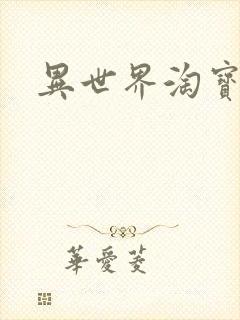 異世界淘寶
華愛菱